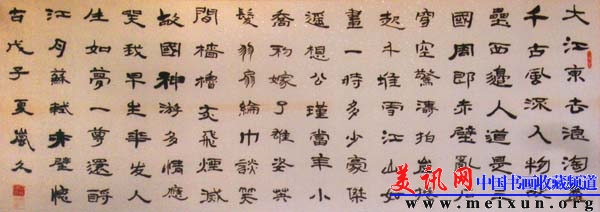 大江東去浪淘盡
千古風流人物故
壘西邊人道是三
國周郎赤壁亂石
穿空驚濤拍岸
起千堆雪江山如
畫一時多少豪傑
遥想公瑾當年小
喬初嫁了雄姿英
發羽扇綸巾談笑
間檣櫓灰飛煙滅
故國神游多情應
笑我早生華发人
生如夢一尊還酹
江月蘇軾赤壁懷
古戊子夏嵐
美讯网 中国书画收藏频道
www.meixun.org